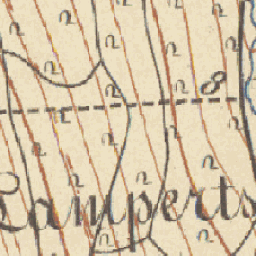 8
Lamperts